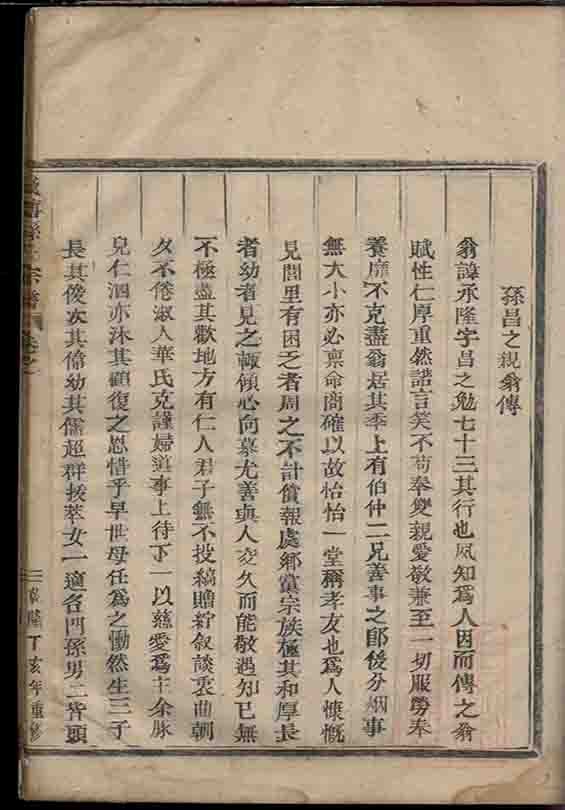 孫昌之親翁傳
翁諱承隆字昌之勉七十三其行也夙知爲人因而傳之翁
賦性仁厚重然諾言笑不苟奉雙親愛敬兼至一切服勞奉
養靡不克盡翁居其季上有伯仲二兄善事之卽後分烟事
無大小亦必禀命商確以故怡怡一堂稱孝友也爲人慷慨
見閭里有困乏者周之不計償報處鄉黨宗族極其和厚長
者幼者見之輙傾心向慕尤善與人交久而能敬遇知已無
不極盡其歡地方有仁人君子無不投縞贈紵叙談衷曲朝
夕不倦淑人華氏克謹婦道事上待下一以慈愛爲主余脉
兒仁泗亦沐其顧復之恩惜乎早世母任爲之慟然生三子
長其俊次其偉幼其儒超群拔萃女一適各門孫男二皆頭
孫氏宗譜
乾隆丁亥年重修